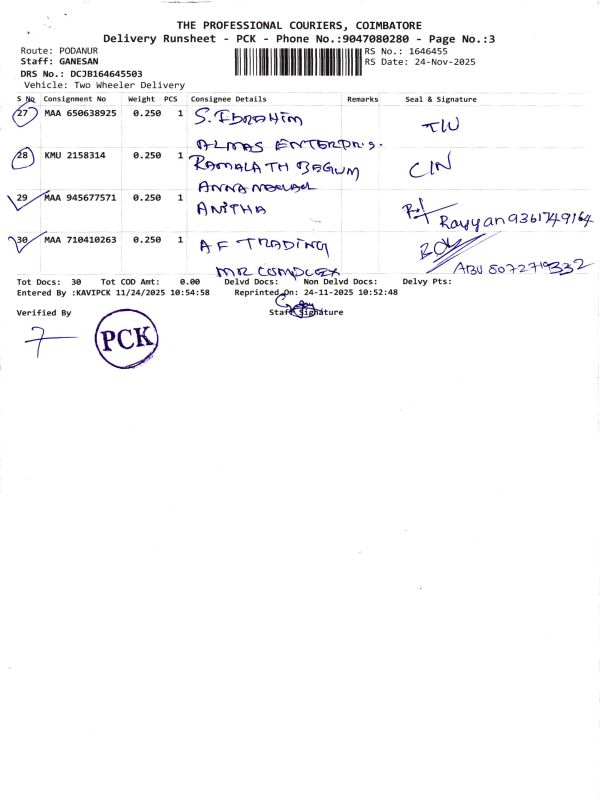 THE PROFESSIONAL COURIERS, COIMBATORE
Delivery Runsheet - PCK - Phone No.:9047080280 - Page No.:3
Route: PODANUR RS No.: 1646455
Staff: GANESAN RS Date: 24-Nov-2025
DRS No.: DCJB164645503
Vehicle: Two Wheeler Delivery
S No Consignment No Weight PCS Consignee Details Remarks Seal & Signature
27 MAA 650638925 0.250 1 S. IBRAHIM
ALMAS ENTERPRIS.
28 KMU 2158314 0.250 1 RAMALATH BEGUM CIN
29 MAA 945677571 0.250 1 ANITHA Rayyan 9361749164
30 MAA 710410263 0.250 1 A F TRADING
MR COMPLEX ABU 8072719332
Tot Docs: 30 Tot COD Amt: 0.00 Delvd Docs: Non Delvd Docs: Delvy Pts:
Entered By :KAVIPCK 11/24/2025 10:54:58 Reprinted On: 24-11-2025 10:52:48
Verified By Staff Signature
PCK